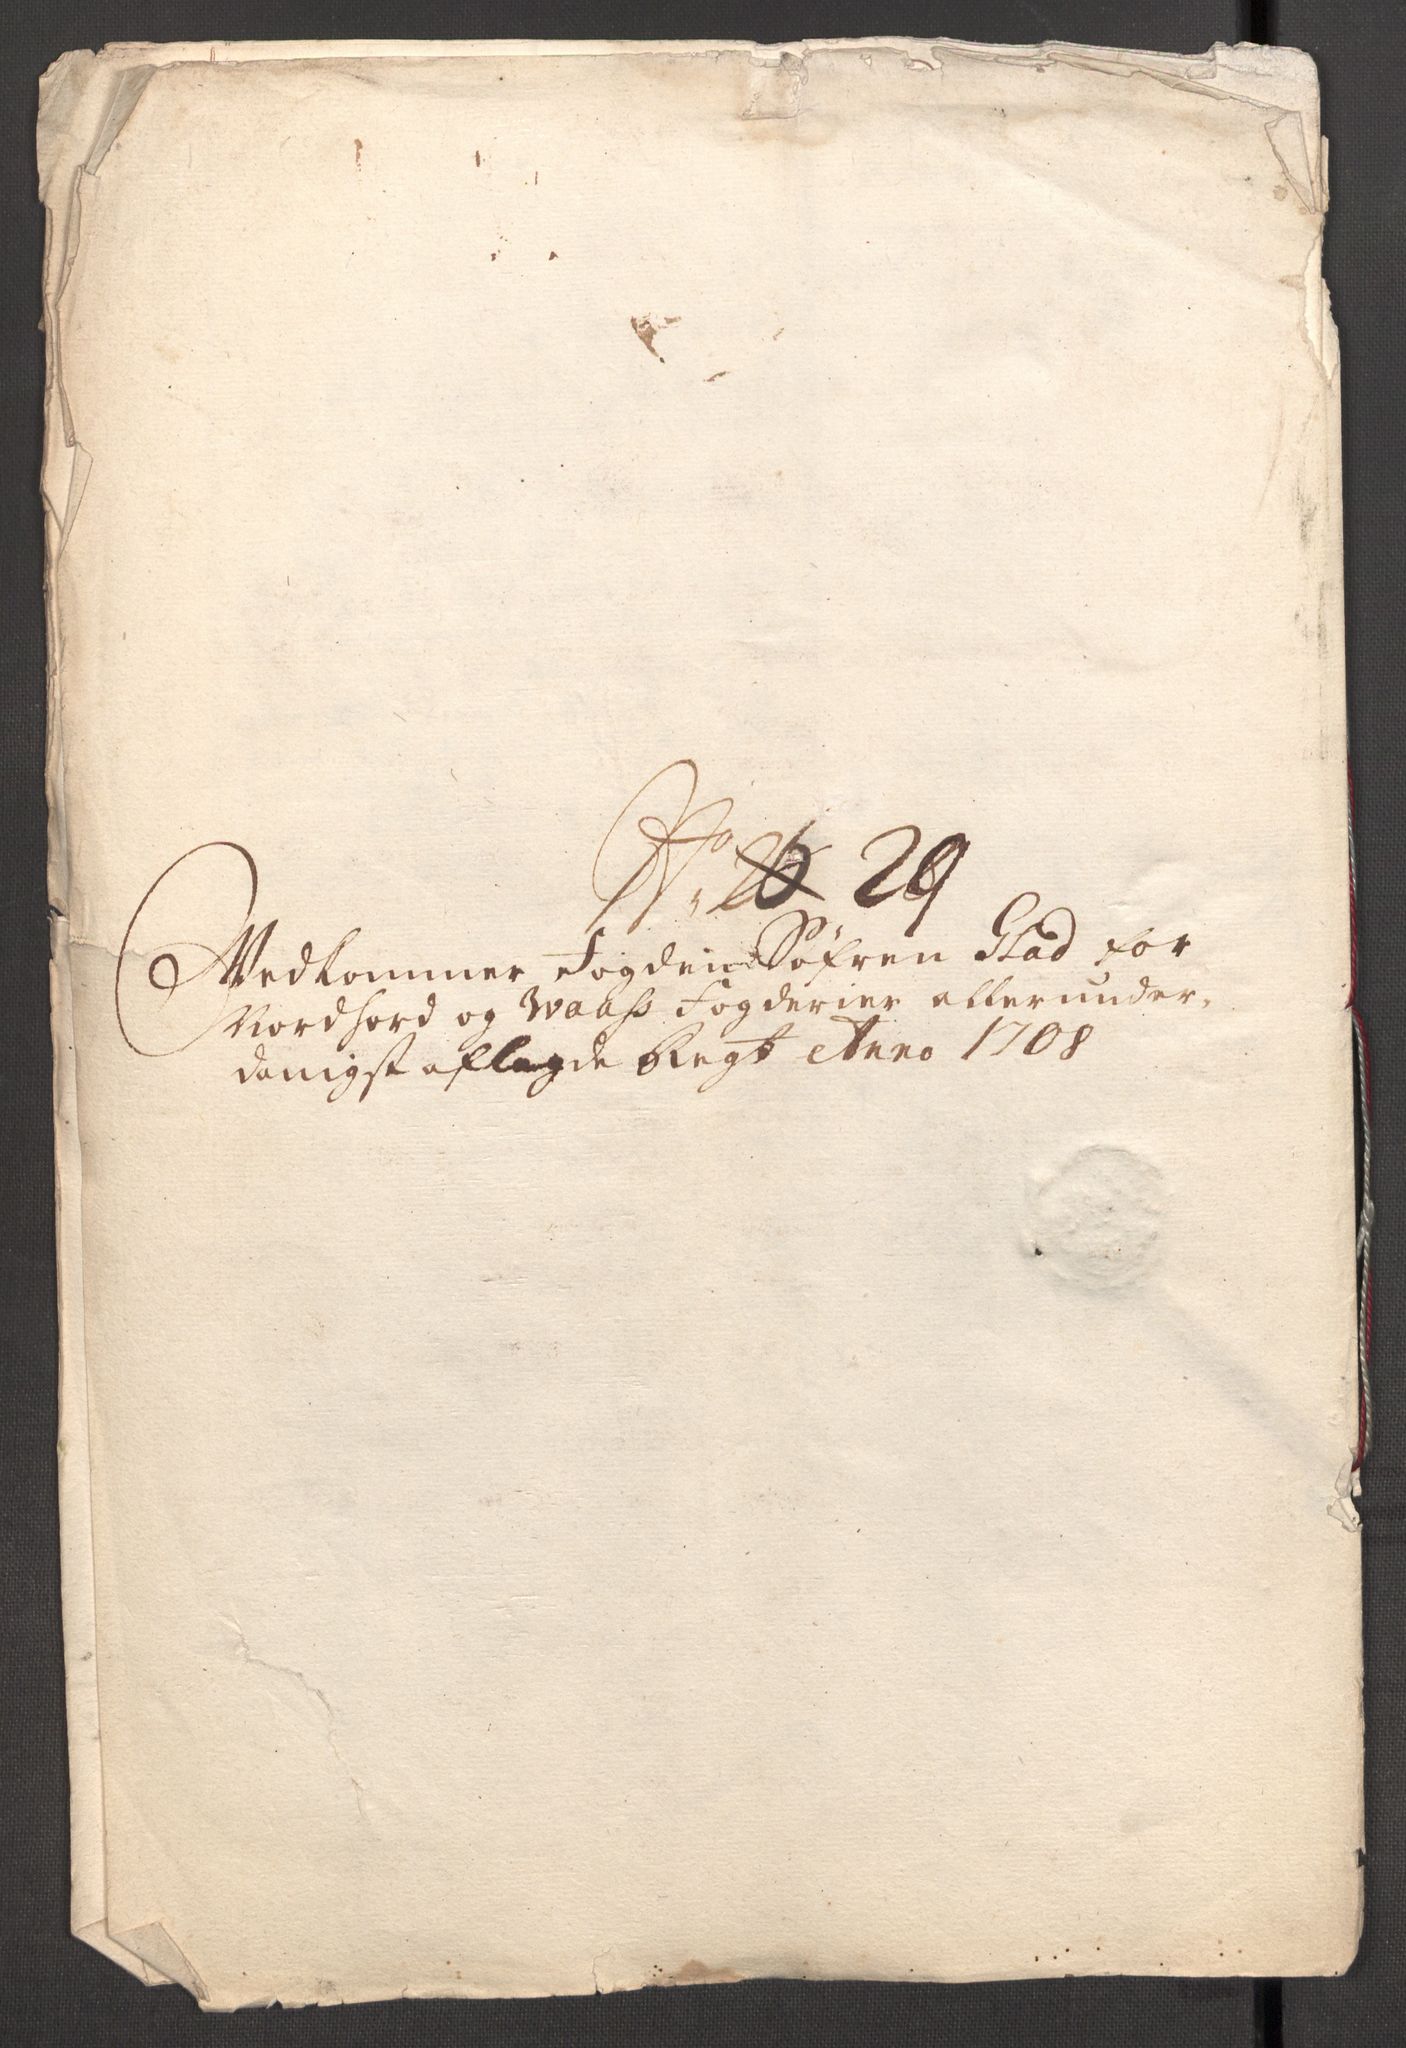 No. 26 29
Wedkommer Fogden Søfren Stad for
Nordhord og Waass Fogderier allerunder-
danigst aflagde Regt Anno 1708